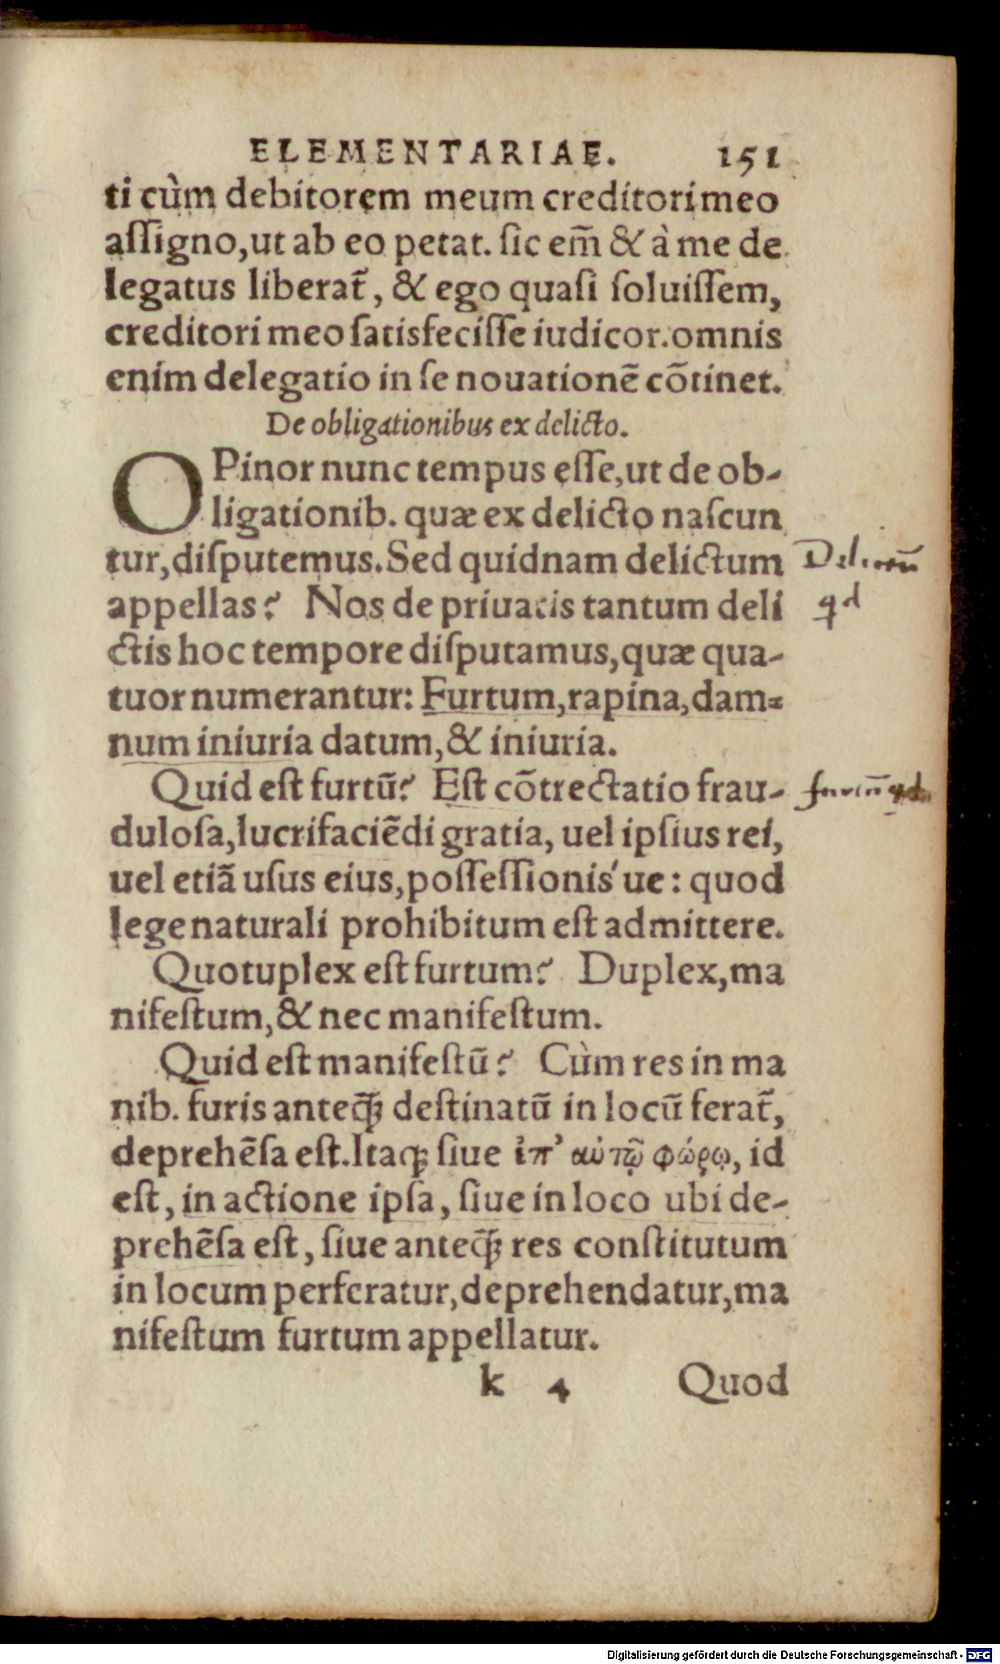 ELEMENTARIAE. 151
ti cùm debitorem meum creditori meo
aſſigno, ut ab eo petat. ſic em̃ & à me de
legatus liberat᷑, & ego quaſi ſoluiſſem,
creditori meo ſatisfeciſſe iudicor. omnis
enim delegatio in ſe nouationẽ cõtinet.
De obligationibus ex delicto.
OPinor nunc tempus eſſe, ut de ob-
ligationib. quæ ex delicto naſcun
tur, diſputemus. Sed quidnam delictum
Delictũ
appellas? Nos de priuatis tantum deli
qd
ctis hoc tempore diſputamus, quæ qua-
tuor numerantur: Furtum, rapina, dam-
num iniuria datum, & iniuria.
Quid eſt furtũ? Eſt cõtrectatio frau-
furtũ qd
duloſa, lucrifaciẽdi gratia, uel ipſius rei,
uel etiã uſus eius, poſſeſſionis´ue: quod
lege naturali prohibitum eſt admittere.
Quotuplex eſt furtum? Duplex, ma
nifeſtum, & nec manifeſtum.
Quid eſt manifeſtũ? Cùm res in ma
nib. furis anteq̃ꝫ deſtinatũ in locũ ferat᷑,
deprehẽſa eſt. Itaqꝫ ſiue ἐπ’ αὐτῷ φώρῳ, id
eſt, in actione ipſa, ſiue in loco ubi de-
prehẽſa eſt, ſiue anteq̃ꝫ res conſtitutum
in locum perferatur, deprehendatur, ma
nifeſtum furtum appellatur.
k 4 Quod
Digitalisierung gefördert durch die Deutsche Forschungsgemeinschaft - DFG